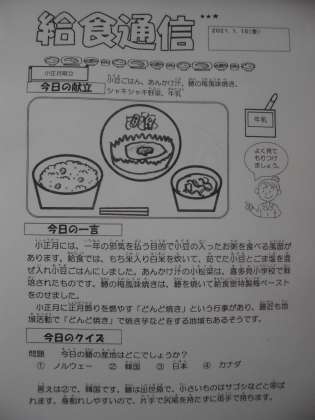 給食通信
2021.1.15(金)
小正月献立
今日の献立
小豆ごはん、あんかけ汁、鰆の梅風味焼き、
シャキシャキ野菜、牛乳
牛乳
よく見て
もりつけ
ましょう。
今日の一言
小正月には、一年の邪気を払う目的で小豆の入ったお粥を食べる風習が
あります。給食では、もち米入り白米を炊いて、茹でた小豆とごま塩を混
ぜ入れ小豆ごはんにしました。あんかけ汁の小松菜は、喜多見小学校で栽
培されたものです。鰆の梅風味焼きは、鰆を焼いて給食室特製梅ペースト
をのせました。
小正月に正月飾りを燃やす「どんど焼き」という行事があり、最近も地
域活動で「どんど焼き」で焼き芋などをする地域もあるそうです。
今日のクイズ
問題　今日の鰆の産地はどこでしょうか？
① ノルウェー　② 韓国　③ 日本　④ カナダ
答えは②で、韓国です。鰆は出世魚で、小さいものはサゴシなどと呼ば
れます。身割れしやすいので、片手で尻尾を持たずに両手で持ちます。